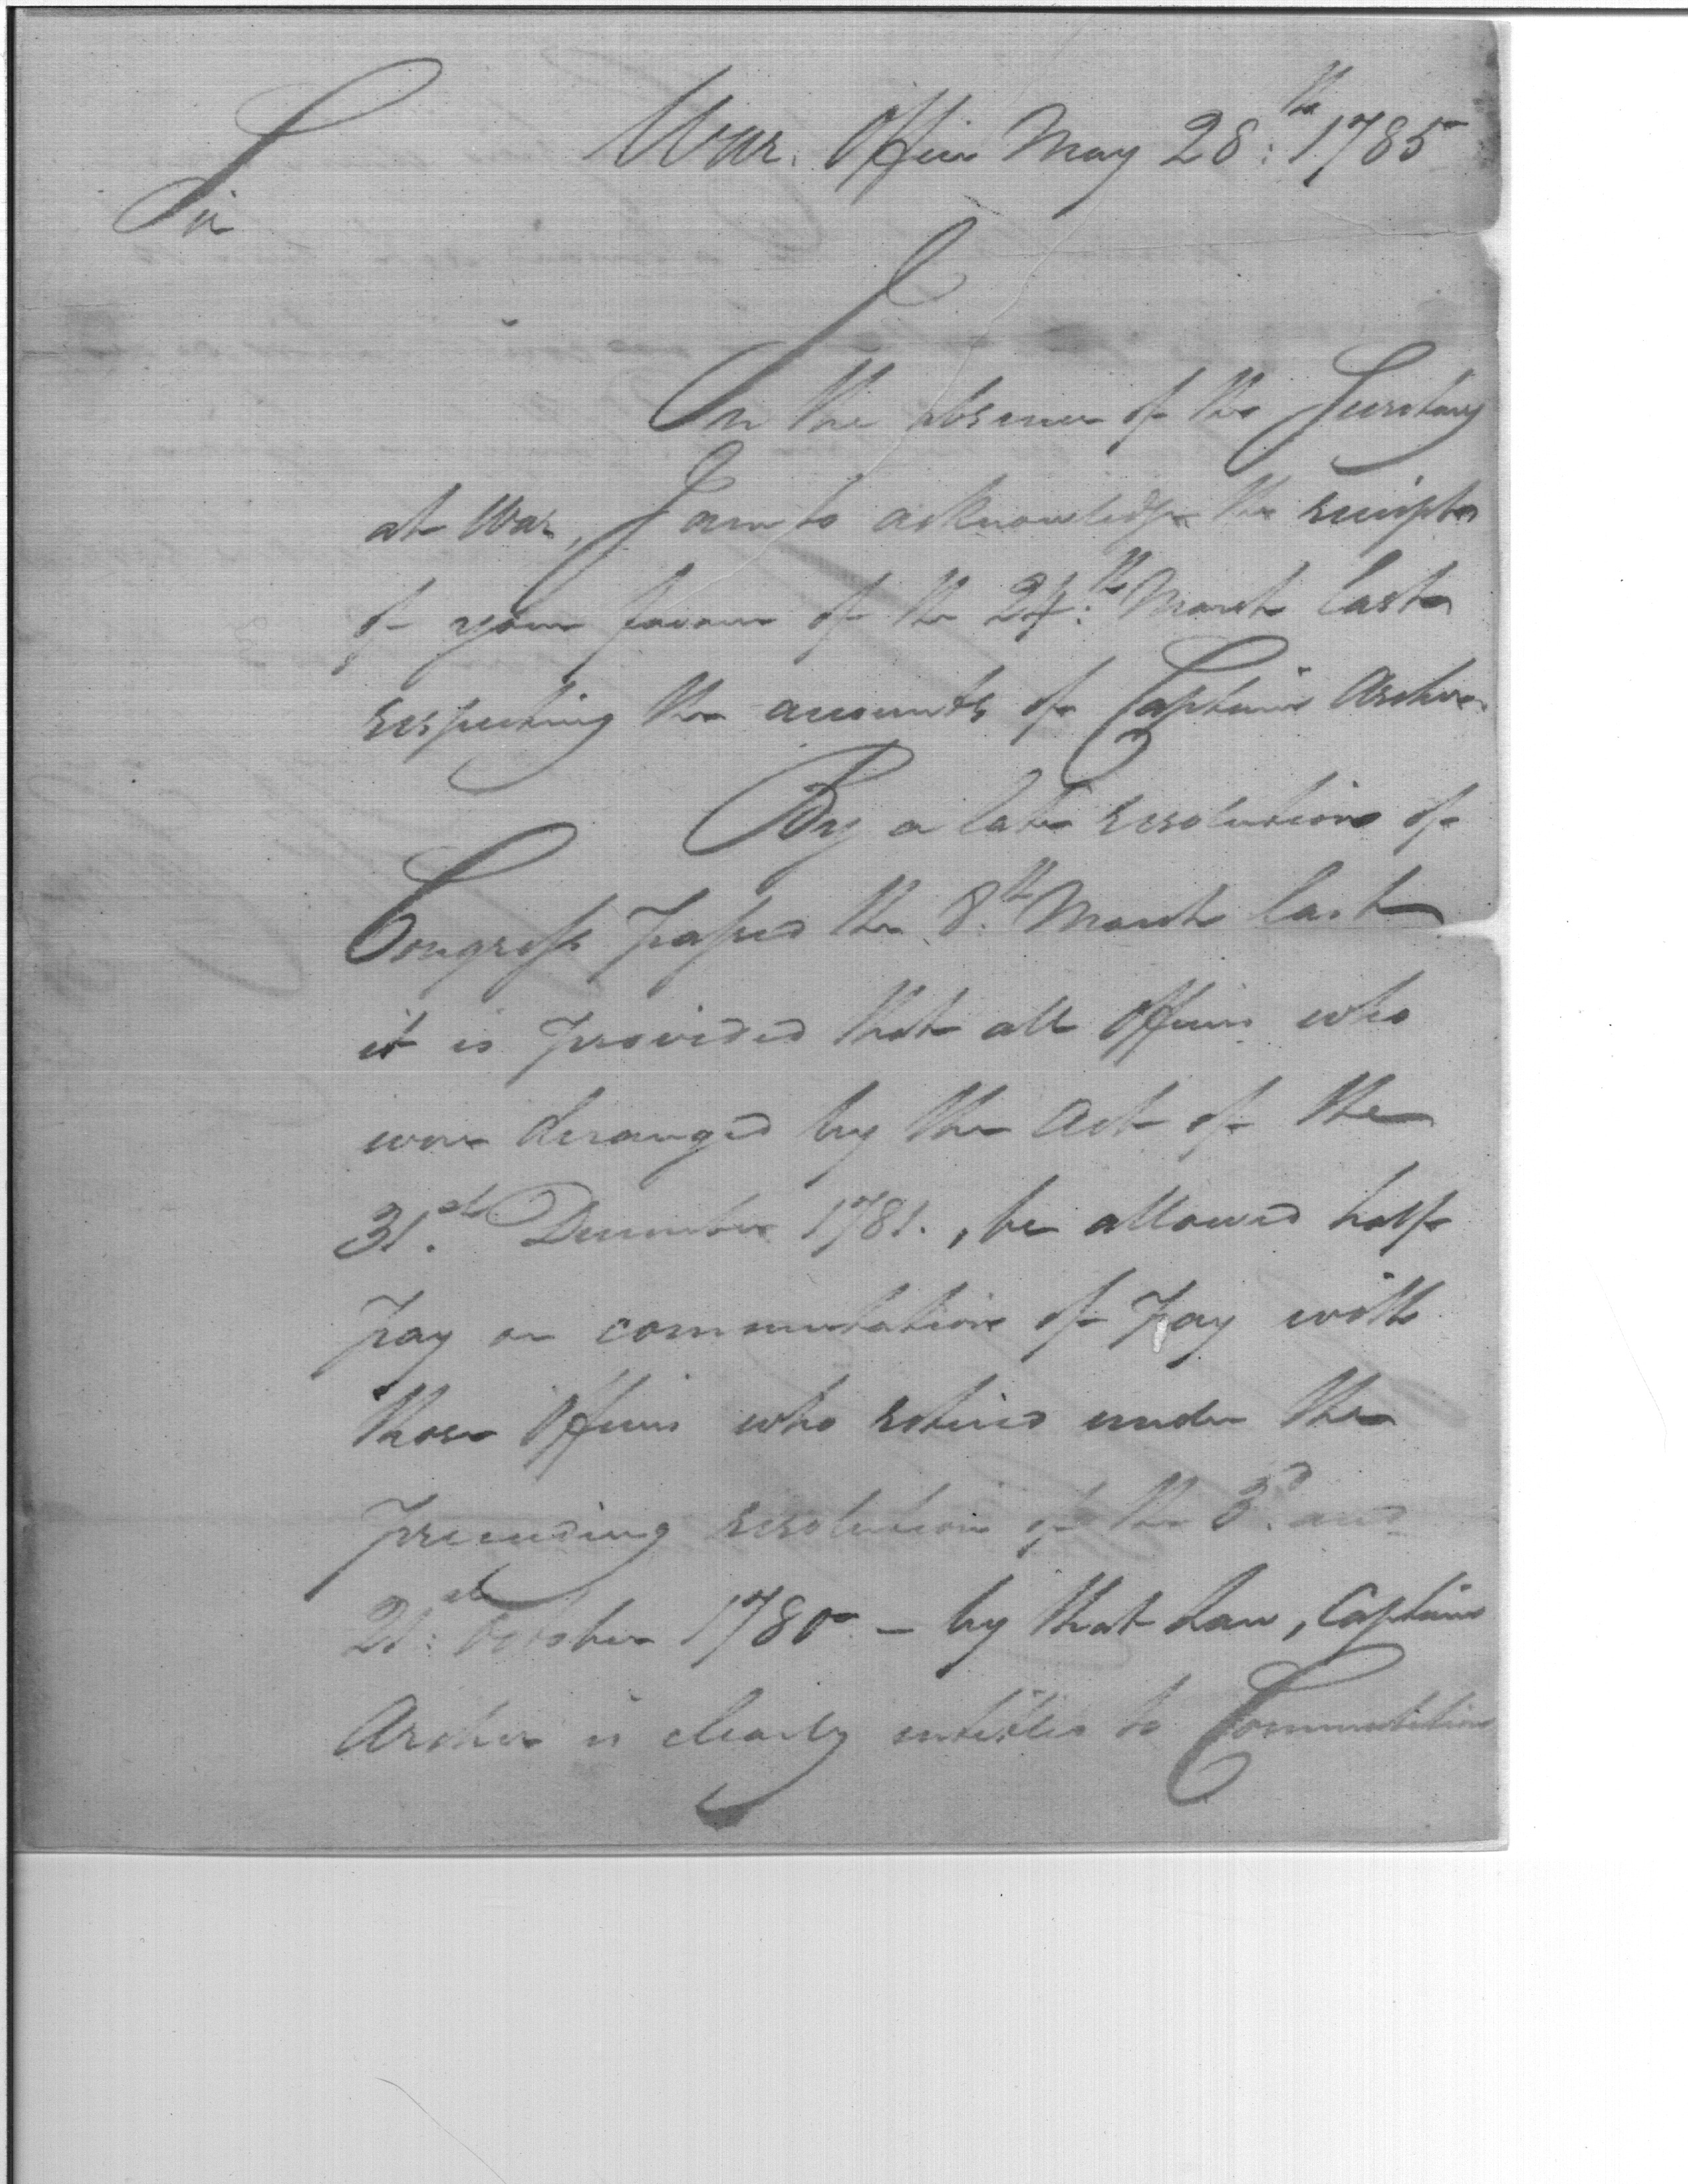 War Office May 28th 1785
Sir
In the absence of the Secretary
at War, I am to acknowledge the receipt
of your favour of the 24th March last
respecting the accounts of Captain Archer
By a late resolution of
Congress passed the 8th March last
it is provided that all Officers who
were deranged by the Act of the
31st December 1781, be allowed half
pay or commutation of pay with
those Officers who retired under the
preceeding resolution of the 3d and
21st October 1780 - by that Law, Captain
Archer is clearly entitled to Commutation